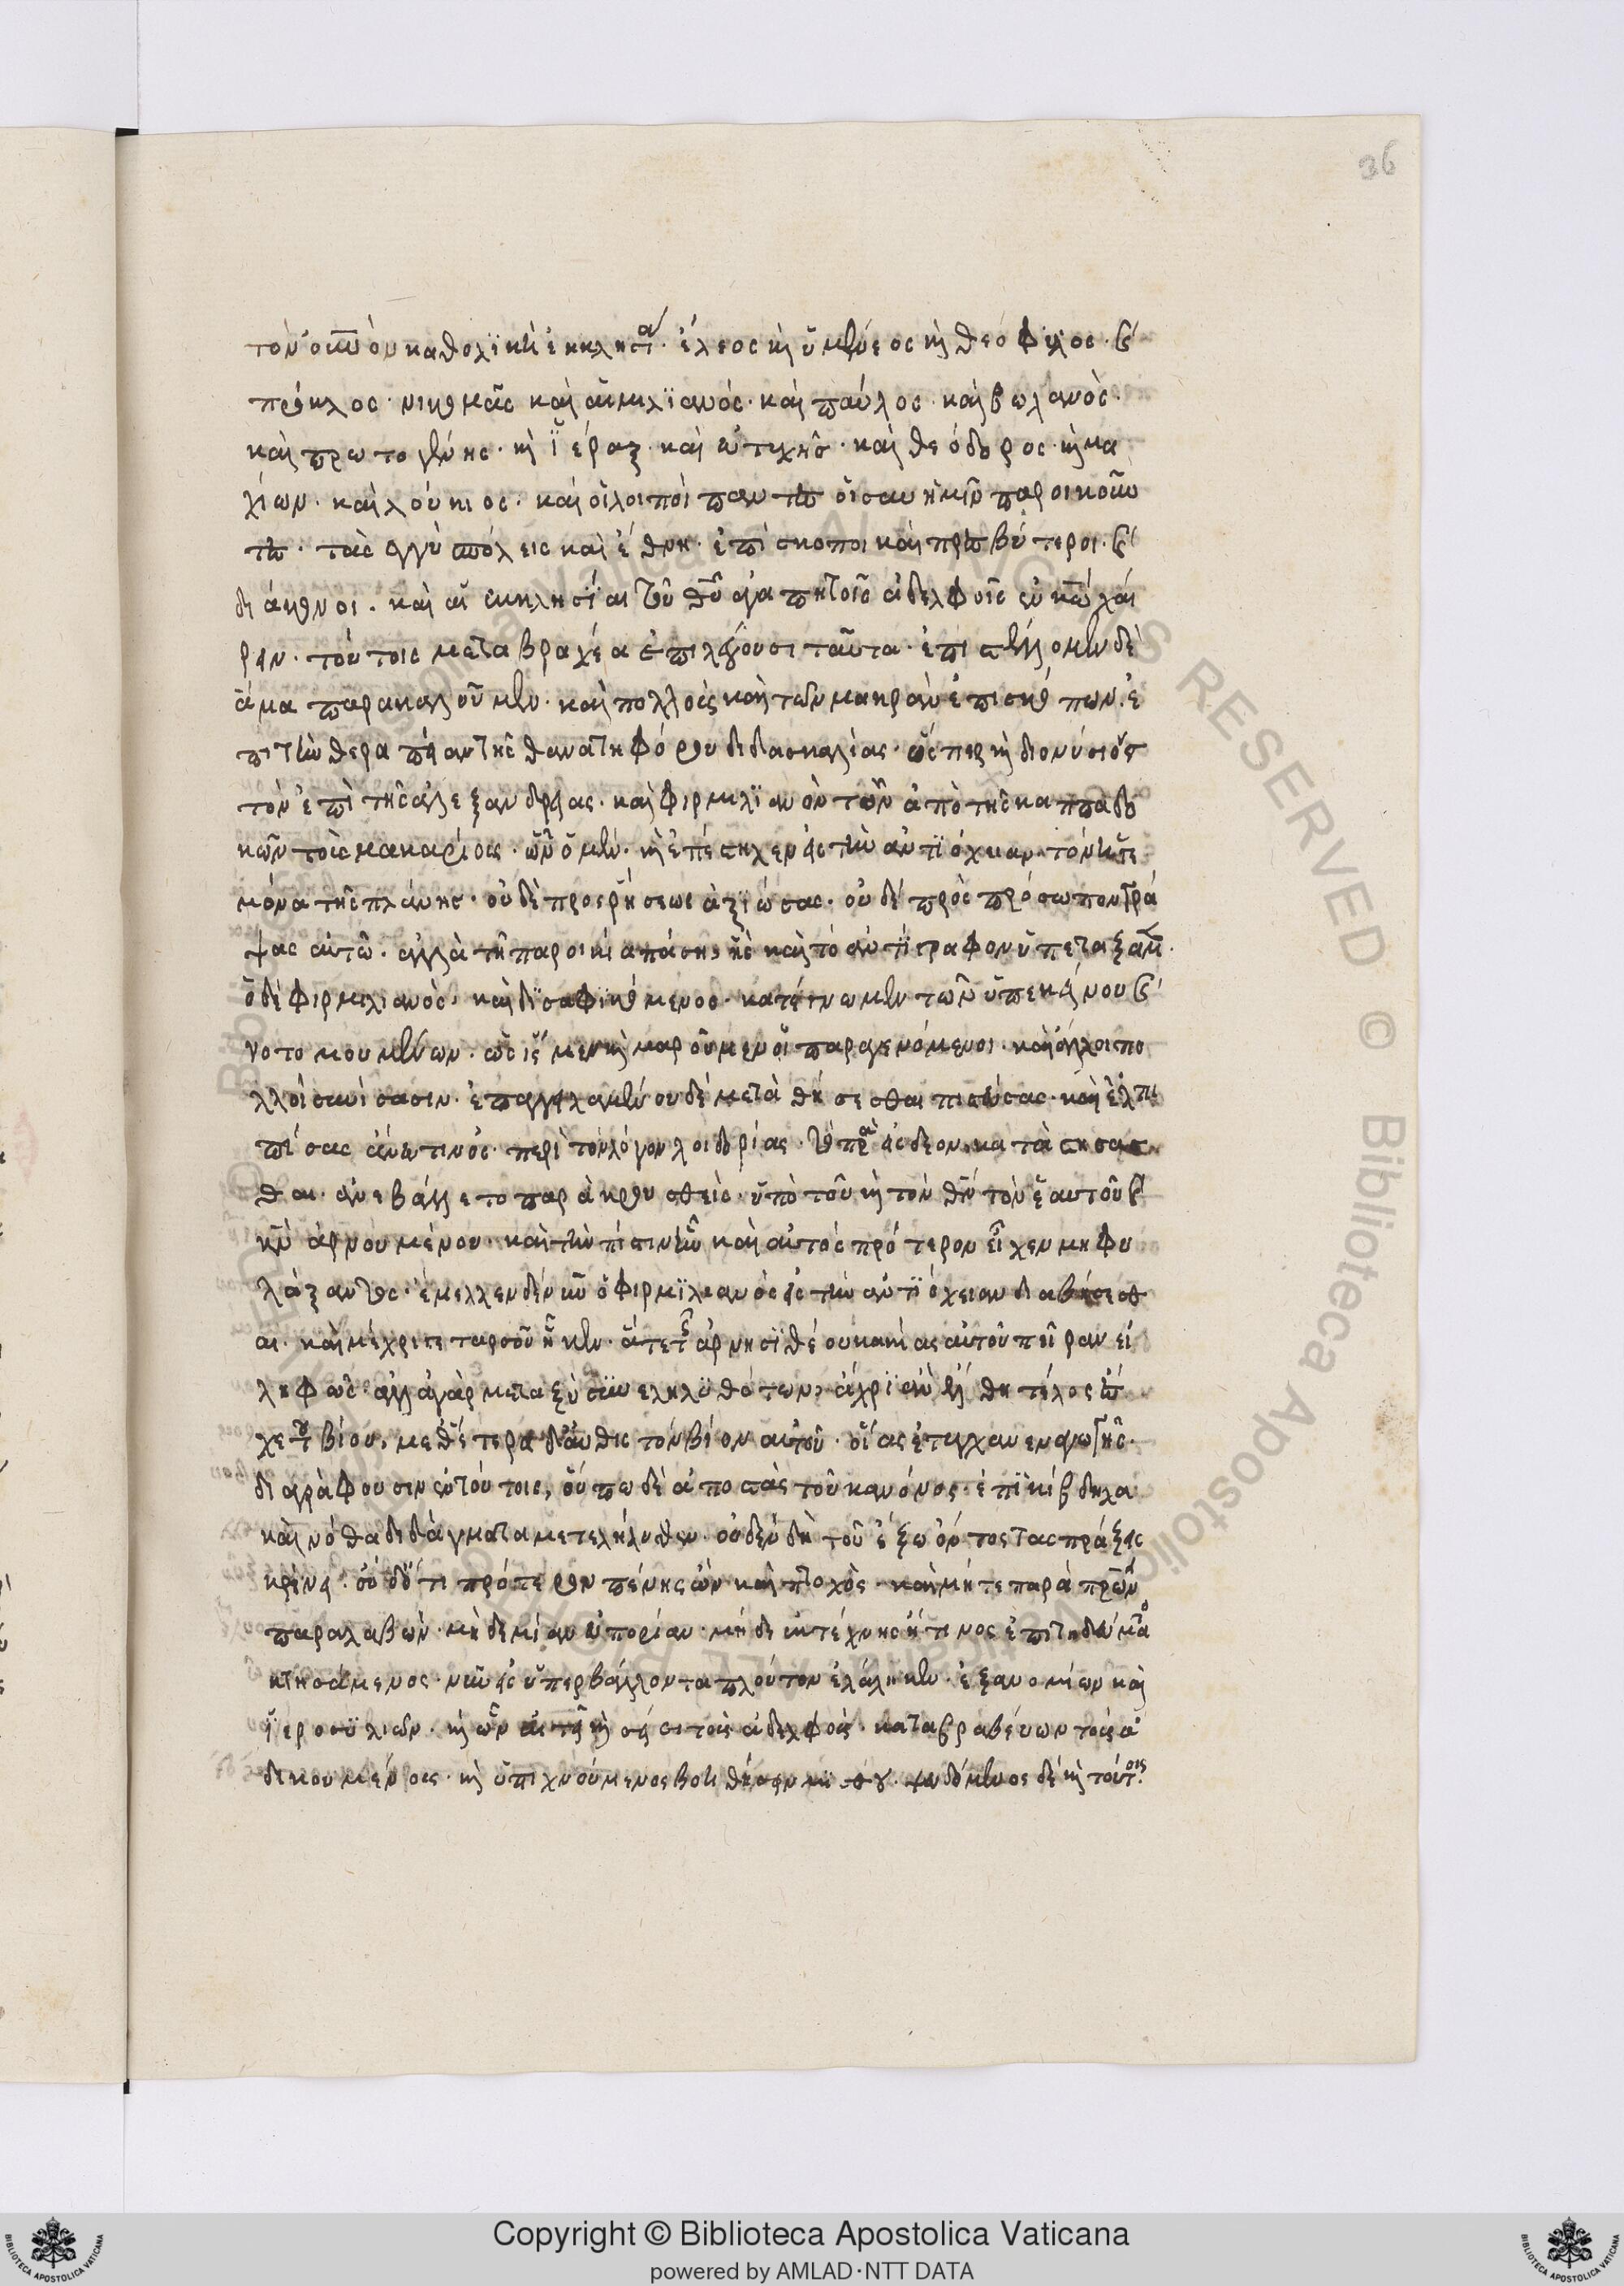 τὸν οὐνὸν καθολϊκῆ ἐκκλησία. ἔλεος καὶ ὑμέν εος καὶ θεόφιλος. καὶ
πρόκλος. νικομᾶς καὶ αἰμιλϊανός. καὶ παύλος. καὶ βωλανὸς.
καὶ πρωτογένης. καὶ ἱέραξ. καὶ εὐτυχὴς. καὶ θεόδωρος. καὶ μα
χίων. καὶ λούκιος. καὶ οἱ λοιποὶ παντες οἱ σὺν ἡμῖν παροικοῦν
τες. τὰς ἐγγὺ πόλεις καὶ ἔθνη. ἐπίσκοποι καὶ πρεσβύτεροι. καὶ
διάκονοι. καὶ αἱ ἐκκλησίαι τοῦ θῦ ἀγαπητοῖς ἀδελφοῖς ἐν κῶ χαί
ρειν. τούτοις μετα βραχέα ἐπιλέγουσι ταῦτα. ἐπιστέλλομεν δὲ
ἅμα παρακαλοῦμεν. καὶ πολλοὺς καὶ των μακρὰν ἐπισκόπων. ἐ
πὶ τὴν θεραπείαν τῆς θανατηφόρου διδασκαλίας. ὥσπερ καὶ διονύσιον
τὸν ἐπὶ τῆς ἀλεξανδρείας. καὶ φιρμιλϊανὸν τὸν ἀπὸ τῆς καππαδο
κῶν τοὺς μακαρίους. ὧν ὁ μέν. καὶ ἐπέστηλεν εἰς τὴν ἀντϊόχειαν. τὸν ἡγε
μόνα τῆς πλάνης. οὐδὲ προσρήσεως ἀξϊώσας. οὐδὲ πρὸς πρόσωπον γρά
ψας αὐτῶ. ἀλλὰ τῆ παροικία πάση, ἧς καὶ τὸ ἀντίγραφον ὑπεταξαμεν.
ὁ δὲ φιρμιλιανὸς. καὶ δὶς ἀφϊκόμενος. κατέγνω μὲν τῶν ὑπ' ἐκείνου καὶ
νοτομουμένων. ὡς ἴσμεν καὶ μαρτυροῦμεν οἱ παραγενόμενοι. καὶ ἄλλοι πο
λλοὶ συνίσασιν. ἐπαγγειλαμένου δὲ μεταθήσεσθαι πιστεύσας. καὶ ἐλπι
πίσας ἄνευ τινὸς περὶ τὸν λόγον λοιδορίας. τὸ πρᾶ εἰς δέον κατάστησασ
θαι. ἀνεβάλλετο παρὰκρουσθεὶς. ὑπὸ τοῦ καὶ τὸν θν τὸν ἑαυτοῦ καὶ
κν ἀρνουμένου. καὶ τὴν πίστιν ἣν καὶ αὐτὸς πρότερον εἶχεν μὴ φυ
λάξαντος. ἔμελλεν δὲ νῦν ὁ φιρμϊλιανὸς εἰς τὴν ἀντϊόχειαν διαβήσεσθ
αι. καὶ μέχρι γε ταρσοῦ ἧκεν. ἅτε τῆς ἀρνησϊθέου κακίας αὐτοῦ πεῖραν εἰ
ληφώς. ἀλλα γὰρ μεταξὺ συνεληλϋθότων, ἄχρϊ ἀν ἔλθη τέλος ἔσ
χε τοῦ βίου, μεθ' ἕτερα δ' αὖθις τὸν βίον αὐτοῦ. οἵας ἐτύγχανεν ἀγωγῆς.
διαγράφουσιν ἐν τούτοις, ὅπου δὲ ἀποστὰς τοῦ κανόνος. ἐπὶ κίβδηλα
καὶ νόθα διδάγματα μετελήλυθεν. οὐδὲν δεῖ τοῦ ἔξω ὄντος τας πράξεις
κρίνειν. οὐδ' ὅτι πρότερον πένης ὢν καὶ πτοχὸς. καὶ μήτε παρὰ πρων
παραλαβὼν. μηδεμίαν εὐπορίαν. μήδε ἐκ τέχνης ἤ τινος ἐπιτηδεύματο
κτησάμενος. νῦν εἰς ὑπερβάλλοντα πλούτον ἐλάληκεν. ἐξ ἀνομιων καὶ
ἱεροσϋλιῶν. καὶ ὧν αἰτεῖ καὶ σείει τοὺς ἀδελφοὺς. καταβραβεύων τοὺς ἀ
δικουμένους. καὶ ὑπιχνούμενος βοηθήσειν μισθοῦ. ψευδόμενος δὲ καὶ τούτους.
36
Copyright © Biblioteca Apostolica Vaticana
powered by AMLAD·NTT DATA